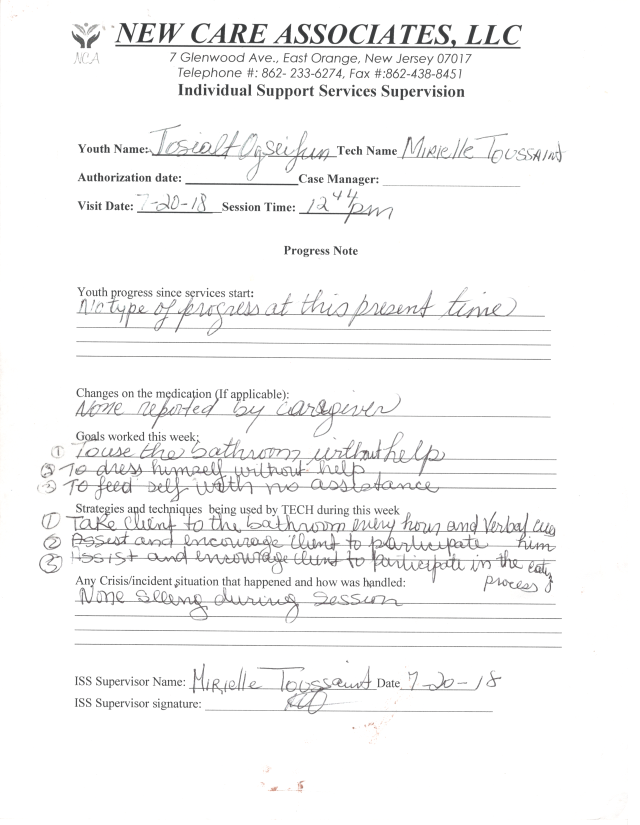 NEW CARE ASSOCIATES, LLC
NCA
7 Glenwood Ave., East Orange, New Jersey 07017
Telephone #: 862- 233-6274, Fax #:862-438-8451
Individual Support Services Supervision
Youth Name: Tech Name Mirielle Toussaint
Authorization date: Case Manager:
Visit Date: 7-20-18 Session Time: 12 44 pm
Progress Note
Youth progress since services start:
No type of progress at this present time
Changes on the medication (If applicable):
None reported by caregiver
Goals worked this week:
① To use the bathroom without help
② To dress himself without help
③ To feed self with no assistance
Strategies and techniques being used by TECH during this week
① Take client to the bathroom every hour and Verbal cues
② Assist and encourage client to participate him
③ Assist and encourage client to participate in the
process
Any Crisis/incident situation that happened and how was handled:
None during session
ISS Supervisor Name: Mirielle Toussaint Date 7-20-18
ISS Supervisor signature: